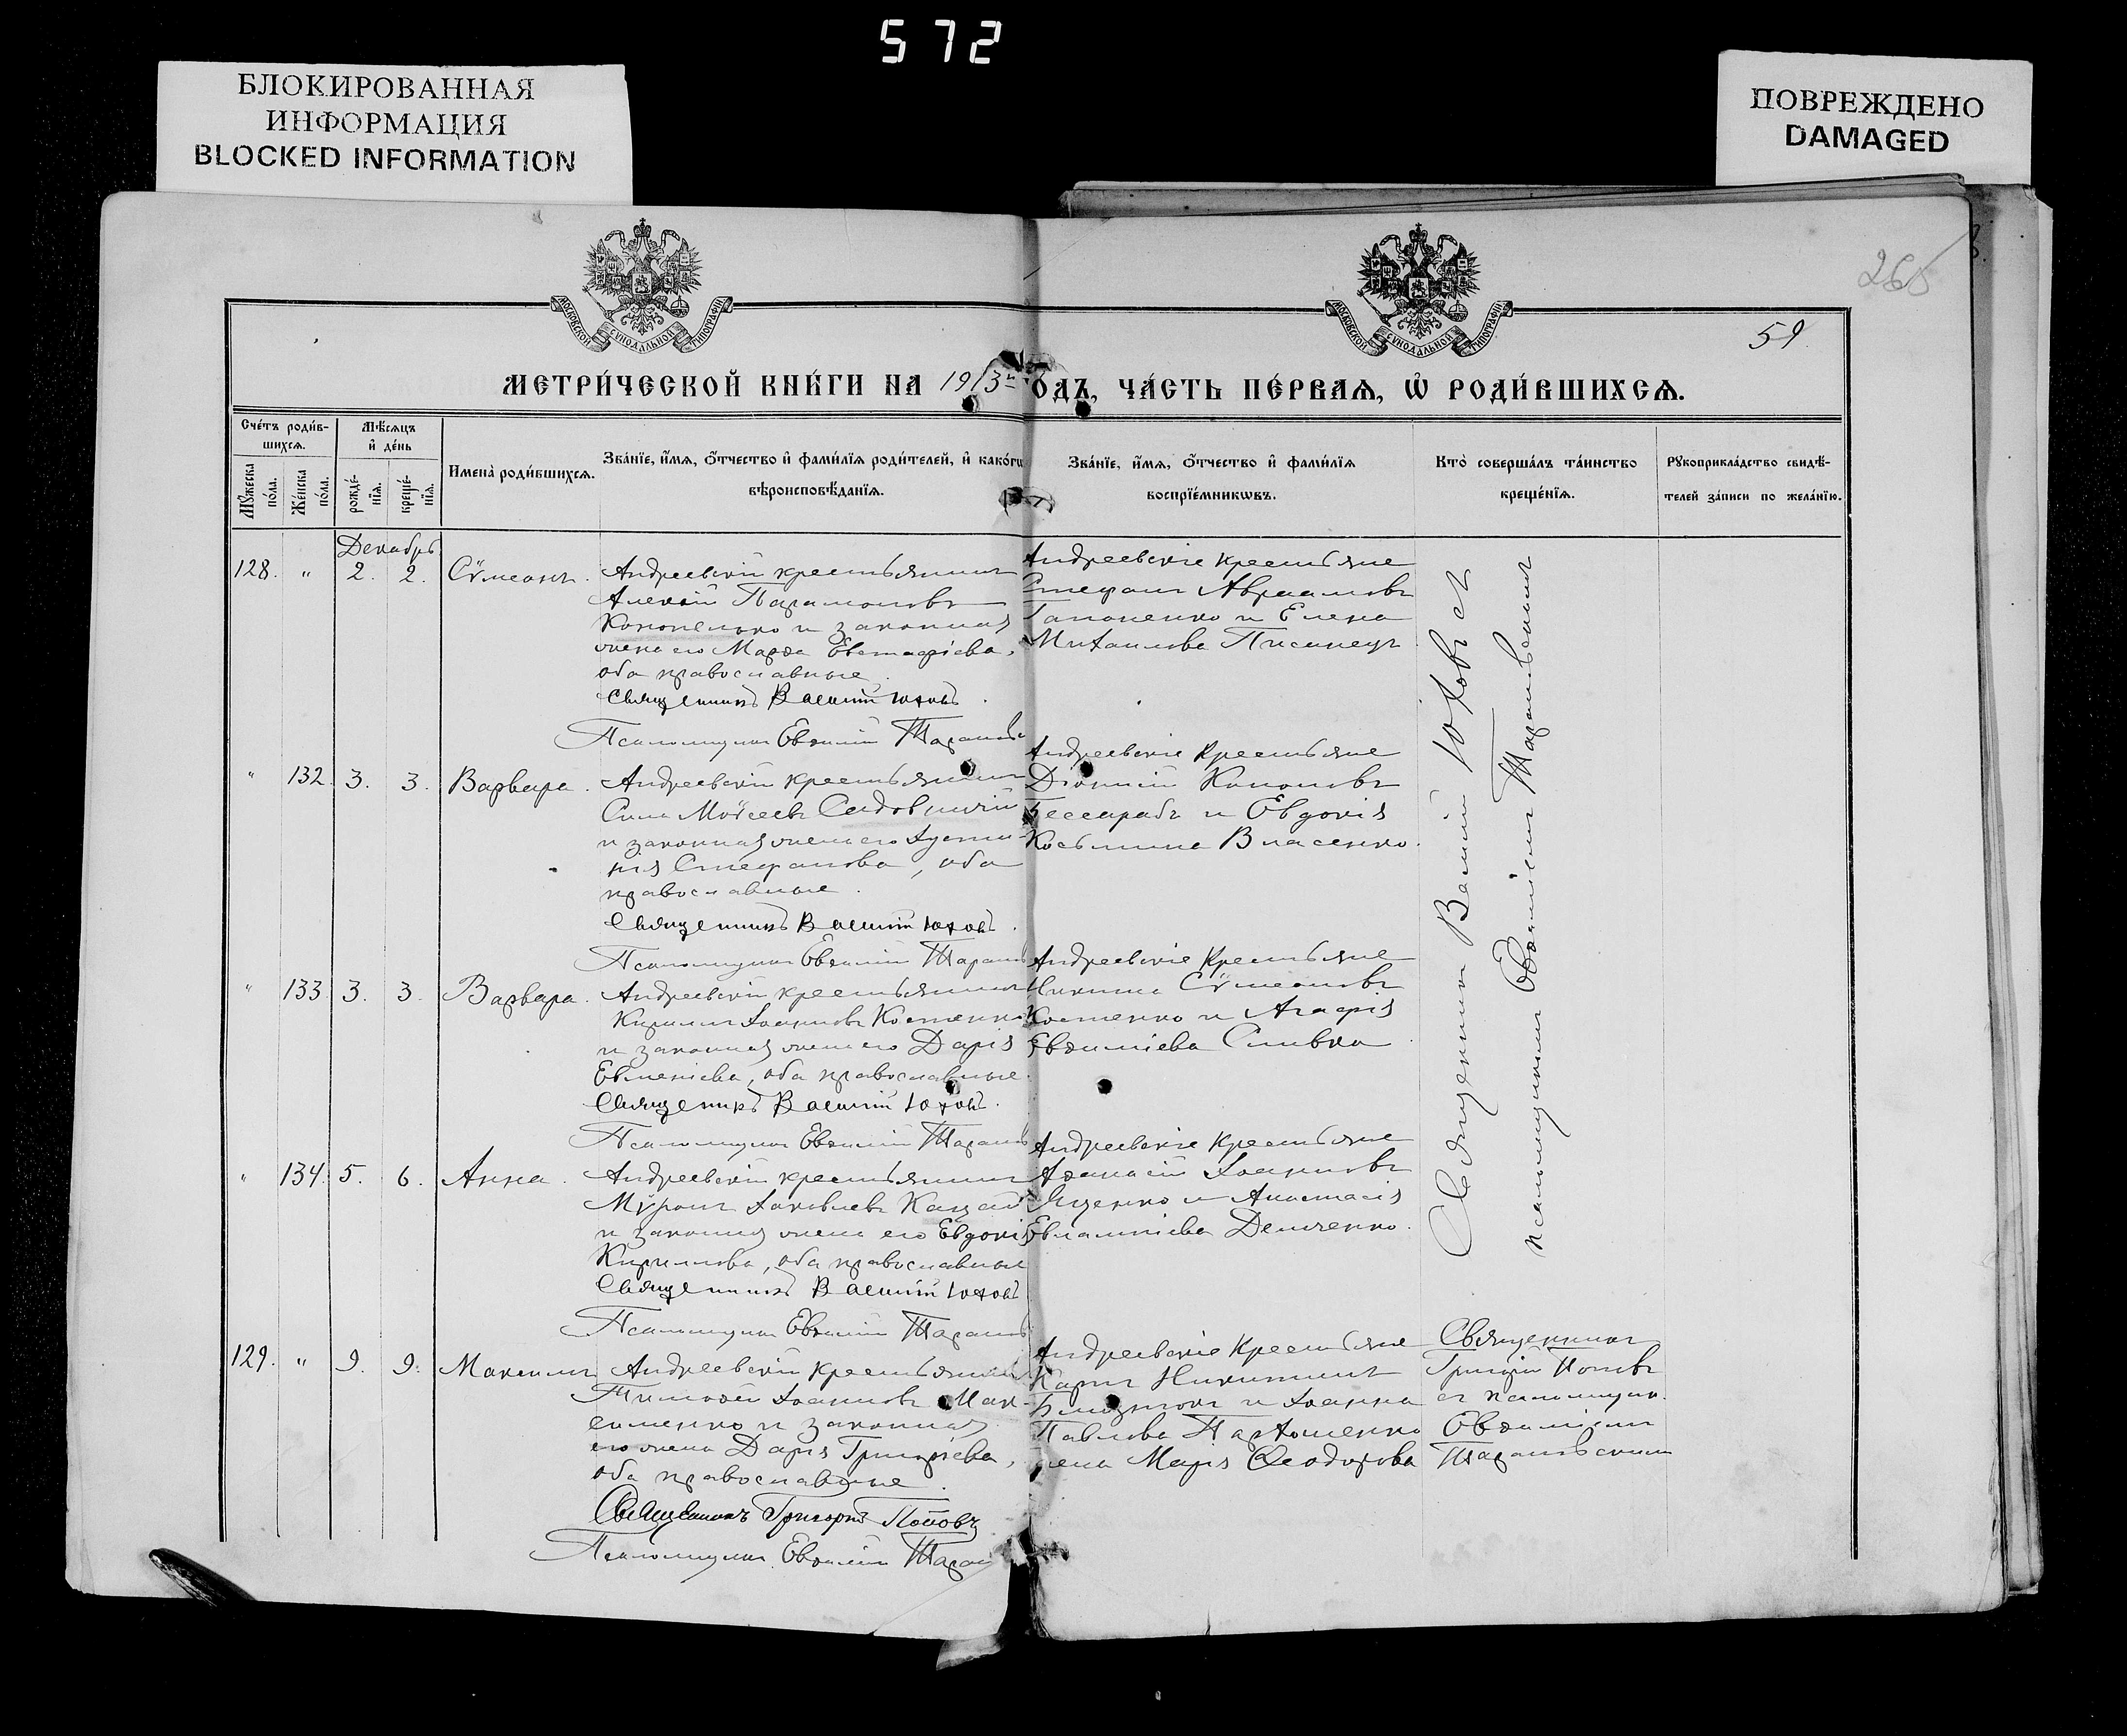 572
БЛОКИРОВАННАЯ
ИНФОРМАЦИЯ
BLOCKED INFORMATION
ПОВРЕЖДЕНО
DAMAGED
265
МОСКОВСКОЙ СУНОДАЛЬНОЙ ТИПОГРАФІИ
МОСКОВСКОЙ СУНОДАЛЬНОЙ ТИПОГРАФІИ
59
МЕТРИ́ЧЕСКОЙ КНИ́ГИ НА 1913й ГОДЪ, ЧА́СТЬ ПЕ́РВАѦ, Ѡ РОДИ́ВШИХСѦ.
Сче́тъ роди́в-
шихсѧ.
Мѣ́сѧцъ
и҆ де́нь
Мꙋ́жеска
по́ла.
Же́нска
по́ла.
рожде́-
нїѧ.
креще́-
нїѧ.
Имена̀ роди́вшихсѧ.
Зва́нїе, и҆́мѧ, ѻ҆́тчество и҆ фами́лїѧ роди́телей, и҆ како́гѡ
вѣроисповѣ́данїѧ.
Зва́нїе, и҆́мѧ, ѻ҆́тчество и҆ фами́лїѧ
воспрїе́мникѡвъ.
Кто̀ соверша́лъ та́инство
креще́нїѧ.
Рꙋкоприкла́дство свидѣ́-
телей за́писи по жела́нїю.
Декабрь
128. " 2. 2. Сѵмеонъ.
Андреевскій крестьянинъ
Алексій Парамоновъ
Кононенко и законная
жена его Марѳа Евстафіева,
оба православные.
Священникъ Василій Юховъ.
Псаломщикъ Евѳимій Тарано
Андреевскіе крестьяне
Стефанъ Авраамовъ
Гапоненко и Елена
Михаилова Писанецъ
" 132. 3. 3. Варвара.
Андреевскій крестьянинъ
Сила Моѵсеевъ Садовничій
и законная жена его Іусти-
нія Стефанова, оба
православные.
Священникъ Василій Юховъ.
Псаломщикъ Евѳимій Таранов
Андреевскіе крестьяне
Діонисій Кононовъ
Бессарабъ и Евдокія
Косьмина Власенко.
" 133. 3. 3. Варвара.
Андреевскій крестьянинъ
Кириллъ Іоанновъ Костенко
и законная жена его Дарія
Евменіева, оба православные.
Священникъ Василій Юховъ.
Псаломщикъ Евѳимій Таранов
Андреевскіе крестьяне
Никита Сѵмеоновъ
Костенко и Агафія
Евѳиміева Сливка
" 134. 5. 6. Анна.
Андреевскій крестьянинъ
Мѵронъ Іаковлевъ Кацай
и законная жена его Евдокія
Кириллова, оба православные
Священникъ Василій Юховъ
Псаломщикъ Евѳимій Таранов
Андреевскіе крестьяне
Аѳанасій Іоанновъ
Яценко и Анастасія
Евлампіева Демченко.
Священникъ Василій Юховъ съ
псаломщикомъ Евѳиміемъ Тарановскимъ
129. " 9. 9. Максимъ
Андреевскій крестьянинъ
Тимоѳей Іоанновъ Мак-
сименко и законная
его жена Дарія Григоріева,
оба православные.
Священникъ Григорій Поповъ
Псаломщикъ Евѳимій Таран
Андреевскіе крестьяне
Карпъ Никитинъ
Близнюкъ и Іоанна
Павлова Пархоменко
жена Марія Ѳеодорова
Священникъ
Григорій Поповъ
съ псаломщик.
Евѳиміемъ
Тарановскимъ